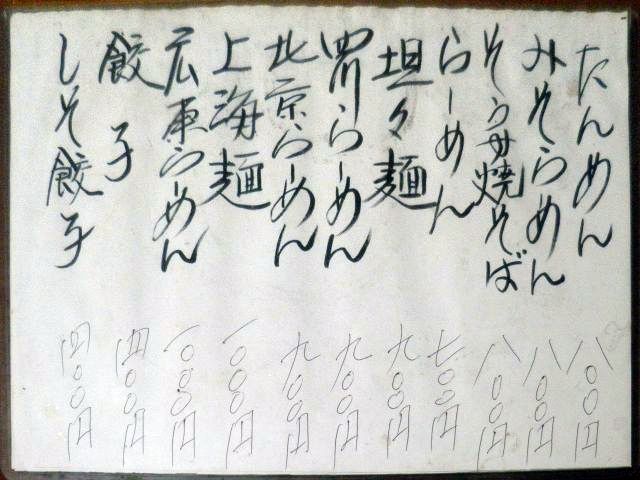 たんめん 八〇〇円
みそらめん 八〇〇円
焼そば 八〇〇円
らーめん 七〇〇円
坦々麺 九〇〇円
四川らーめん 九〇〇円
北京らーめん 九〇〇円
上海麺 一〇〇〇円
広東らーめん 一〇〇〇円
餃子 四〇〇円
しそ餃子 四〇〇円